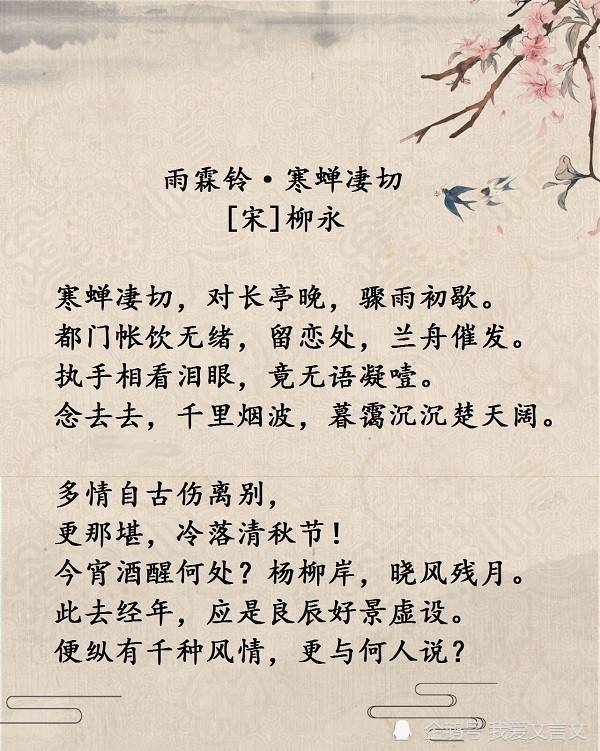 雨霖铃·寒蝉凄切
[宋]柳永
寒蝉凄切，对长亭晚，骤雨初歇。
都门帐饮无绪，留恋处，兰舟催发。
执手相看泪眼，竟无语凝噎。
念去去，千里烟波，暮霭沉沉楚天阔。
多情自古伤离别，
更那堪，冷落清秋节！
今宵酒醒何处？杨柳岸，晓风残月。
此去经年，应是良辰好景虚设。
便纵有千种风情，更与何人说？
企鹅号 我爱文言文